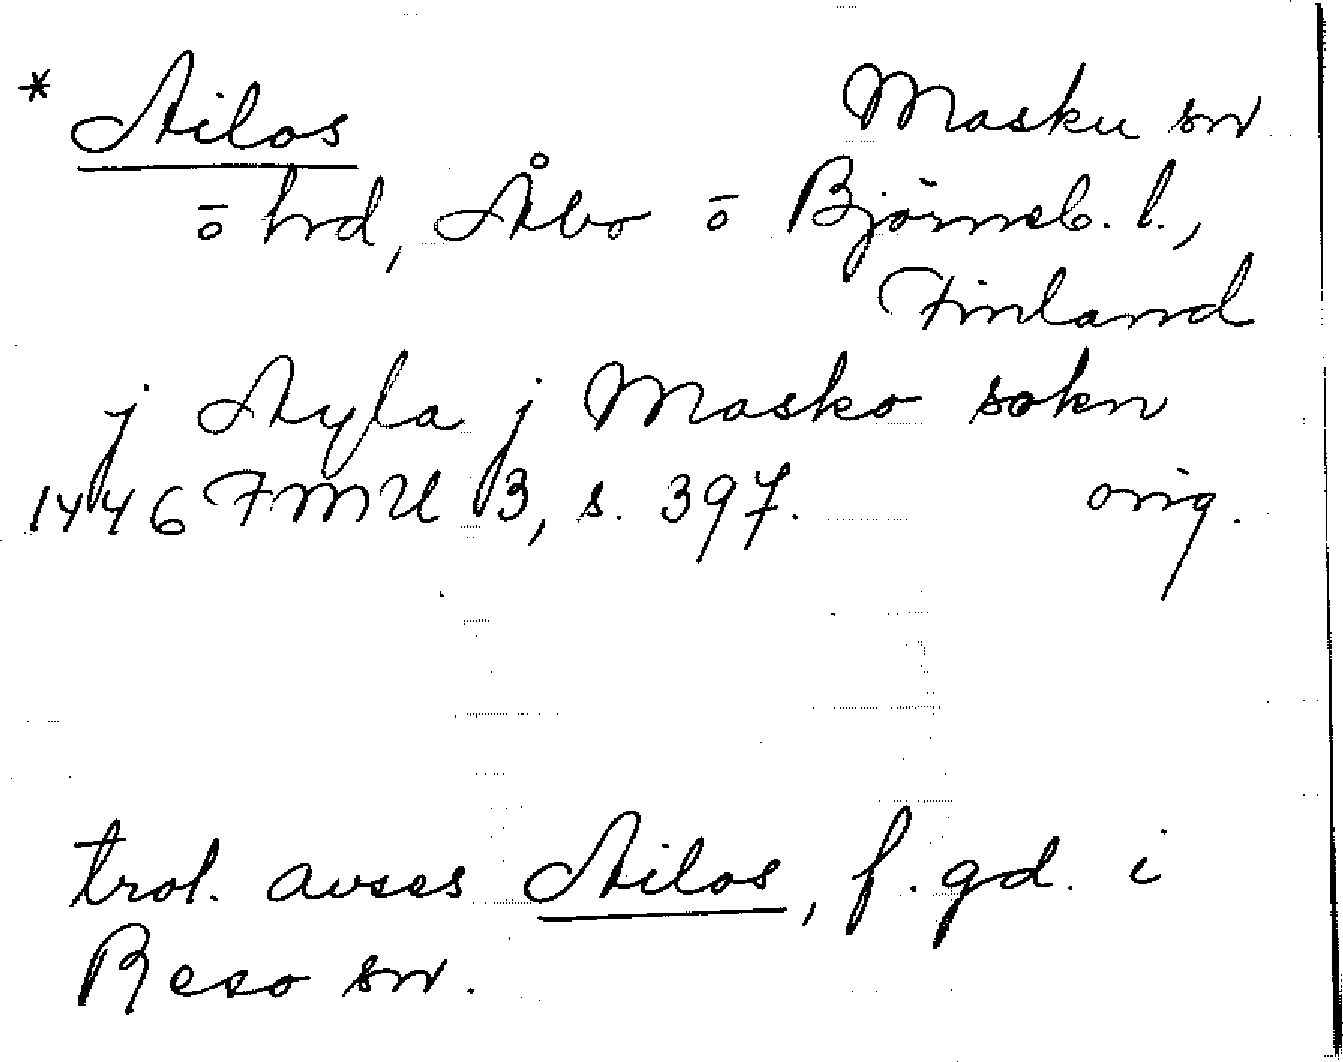 * Ailos Masku sn
ō hd, Åbo ō Björneb. l.,
Finland
j Ayla j Masko sokn
1446 FMU 3, s. 397. orig.
trol. avses Ailos, f. gd. i
Reso sn.